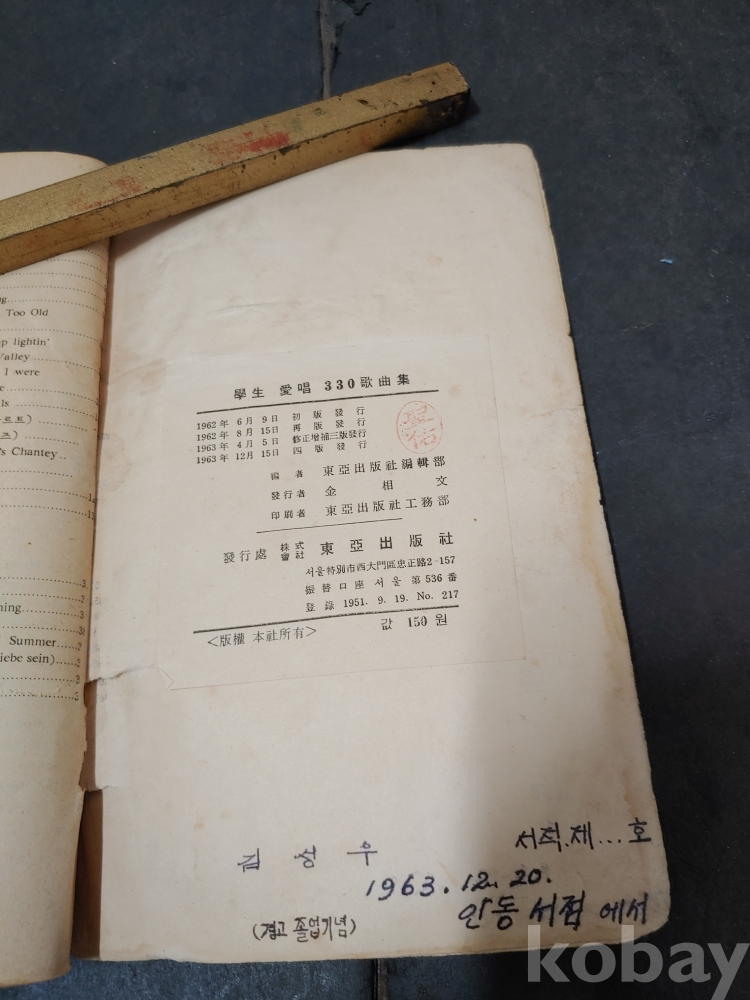 g
Too Old
p lightin'
Valley
I were
e
ls
ㅡ르트)
즈)
's Chantey
ning
Summer
iebe sein)
學生 愛唱 330歌曲集
1962年 6月 9日 初版發行
1962年 8月 15日 再版發行
1963年 4月 5日 修正增補三版發行
1963年 12月 15日 四版發行
編者 東亞出版社編輯部
發行者 金相文
印刷者 東亞出版社工務部
發行處 株式會社 東亞出版社
서울特別市西大門區忠正路2-157
振替口座 서울 第536番
登錄 1951. 9. 19. No. 217
<版權 本社所有> 값 150원
김상우
서적.제...호
1963.12.20.
안동서점에서
(경고 졸업기념)
kobay